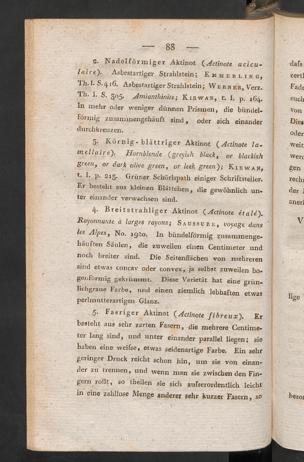 — 88 —
2. Nadelförmiger Aktinot (Actinote acicu-
laire). Asbestartiger Strahlstein; EMMERLING,
Th. I. S. 416. Asbestartiger Strahlstein; WERNER, Verz.
Th. I. S. 305. Amianthinite; KIRWAN, t. I. p. 164.
In mehr oder weniger dünnen Prismen, die bündel-
förmig zusammengehäuft sind, oder sich einander
durchkreuzen.
3. Körnig-blättriger Actinot (Actinote la-
mellaire). Hornblende (greyish black, or blackish
green, or dark olive green, or leek green); KIRWAN,
t. I. p. 215. Grüner Schörlspath einiger Schriftsteller.
Er besteht aus kleinen Blättchen, die gewöhnlich un-
ter einander verwachsen sind.
4. Breitstrahliger Aktinot (Actinote étalé).
Rayonnante à larges rayons; SAUSSURE, voyage dans
les Alpes, No. 1920. In bündelförmig zusammenge-
häuften Säulen, die zuweilen einen Centimeter und
noch breiter sind. Die Seitenflächen von mehreren
sind etwas concav oder convex, ja selbst zuweilen bo-
genförmig gekrümmt. Diese Varietät hat eine grün-
lichgraue Farbe, und einen ziemlich lebhaften etwas
perlmutterartigen Glanz.
5. Fasriger Aktinot (Actinote fibreux). Er
besteht aus sehr zarten Fasern, die mehrere Centime-
ter lang sind, und unter einander parallel liegen; sie
haben eine weisse, etwas seidenartige Farbe. Ein sehr
geringer Druck reicht schon hin, um sie von einan-
der zu trennen, und wenn man sie zwischen den Fin-
gern rollt, so theilen sie sich ausserordentlich leicht
in eine zahllose Menge anderer sehr kurzer Fasern, so